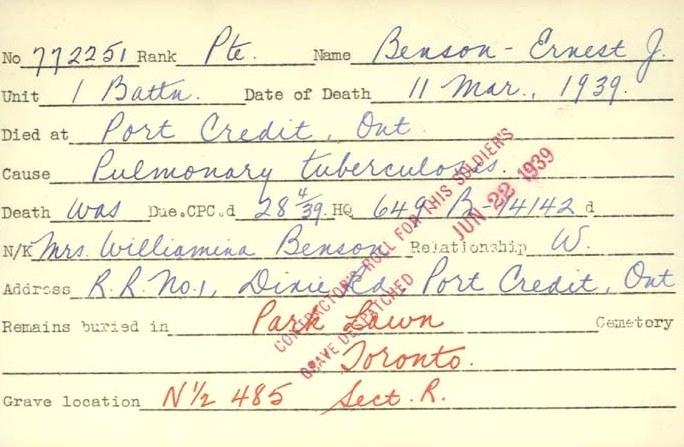 No 772251 Rank Pte. Name Benson - Ernest J.
Unit 1 Battn. Date of Death 11 Mar., 1939.
Died at Port Credit, Ont.
Cause Pulmonary tuberculosis.
Death Was Due.CPC.d 28 4/39 HQ 649-B-14142 d
N/K Mrs. Williamina Benson Relationship W.
Address R.R. No.1, Dixie Rd., Port Credit, Ont
Remains buried in Park Lawn Cemetery
Toronto.
Grave location N½ 485 Sect. R.
CONTRACTOR'S ROLL FOR THIS SOLDIER'S
GRAVE DESPATCHED JUN 22 1939